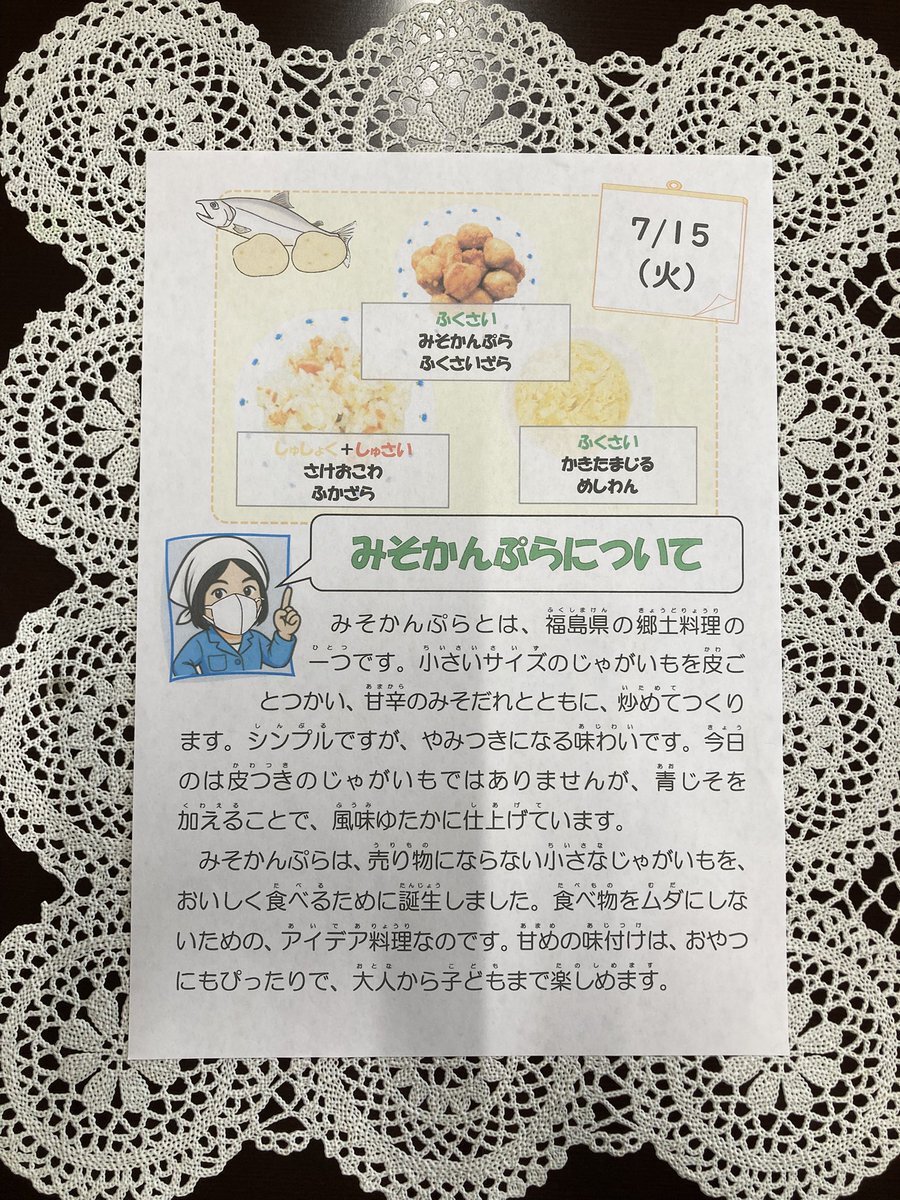 7/15
(火)
ふくさい
みそかんぷら
ふくさいざら
しゅしょく+しゅさい
さけおこわ
ふかざら
ふくさい
かきたまじる
めしわん
みそかんぷらについて
みそかんぷらとは、福島県の郷土料理の
一つです。小さいサイズのじゃがいもを皮ご
とつかい、甘辛のみそだれとともに、炒めてつくり
ます。シンプルですが、やみつきになる味わいです。今日
のは皮つきのじゃがいもではありませんが、青じそを
加えることで、風味ゆたかに仕上げています。
みそかんぷらは、売り物にならない小さなじゃがいもを、
おいしく食べるために誕生しました。食べ物をムダにしな
いための、アイデア料理なのです。甘めの味付けは、おやつ
にもぴったりで、大人から子どもまで楽しめます。